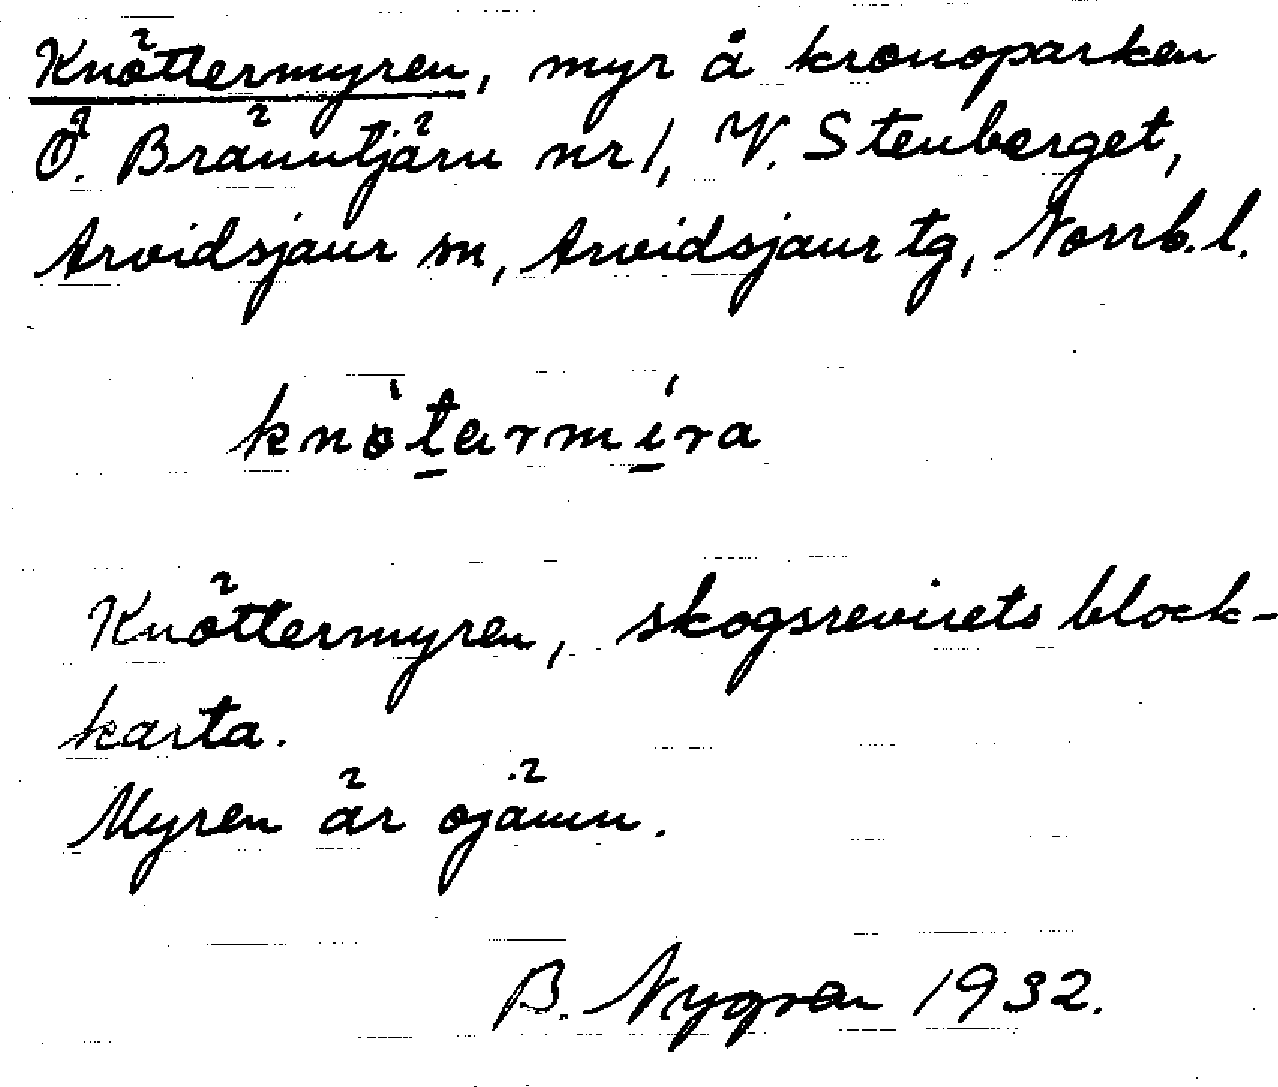 Knöttermyren, myr å kronoparken
Ö. Bränntjärn nr 1, V. Stenberget,
Arvidsjaur sn, Arvidsjaur tg, Norrb. l.
knò̱tarmíra
Knöttermyren, skogsrevirets block-
karta.
Myren är ojämn.
B. Nygren 1932.